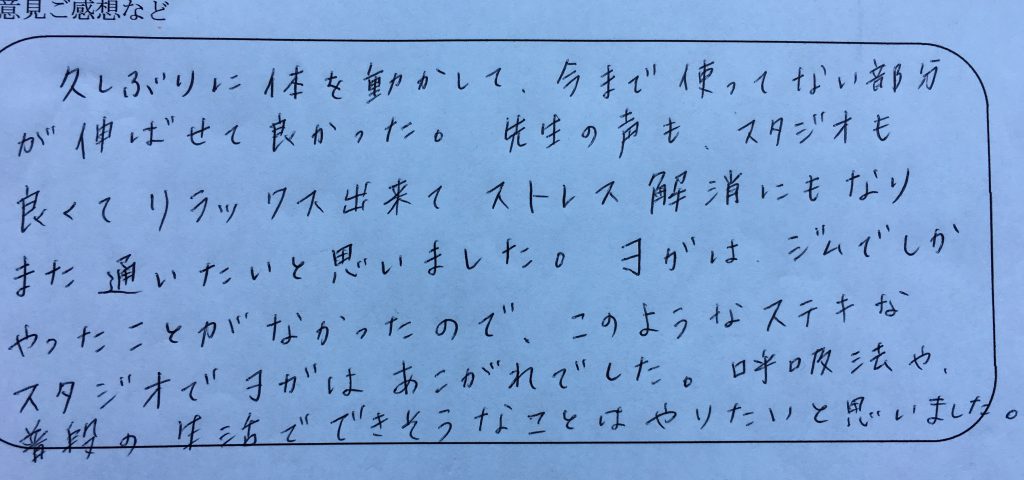 意見ご感想など
久しぶりに体を動かして、今まで使ってない部分
が伸ばせて良かった。先生の声も、スタジオも
良くてリラックス出来てストレス解消にもなり
また通いたいと思いました。ヨガは、ジムでしか
やったことがなかったので、このようなステキな
スタジオでヨガはあこがれでした。呼吸法や、
普段の生活でできそうなことはやりたいと思いました。